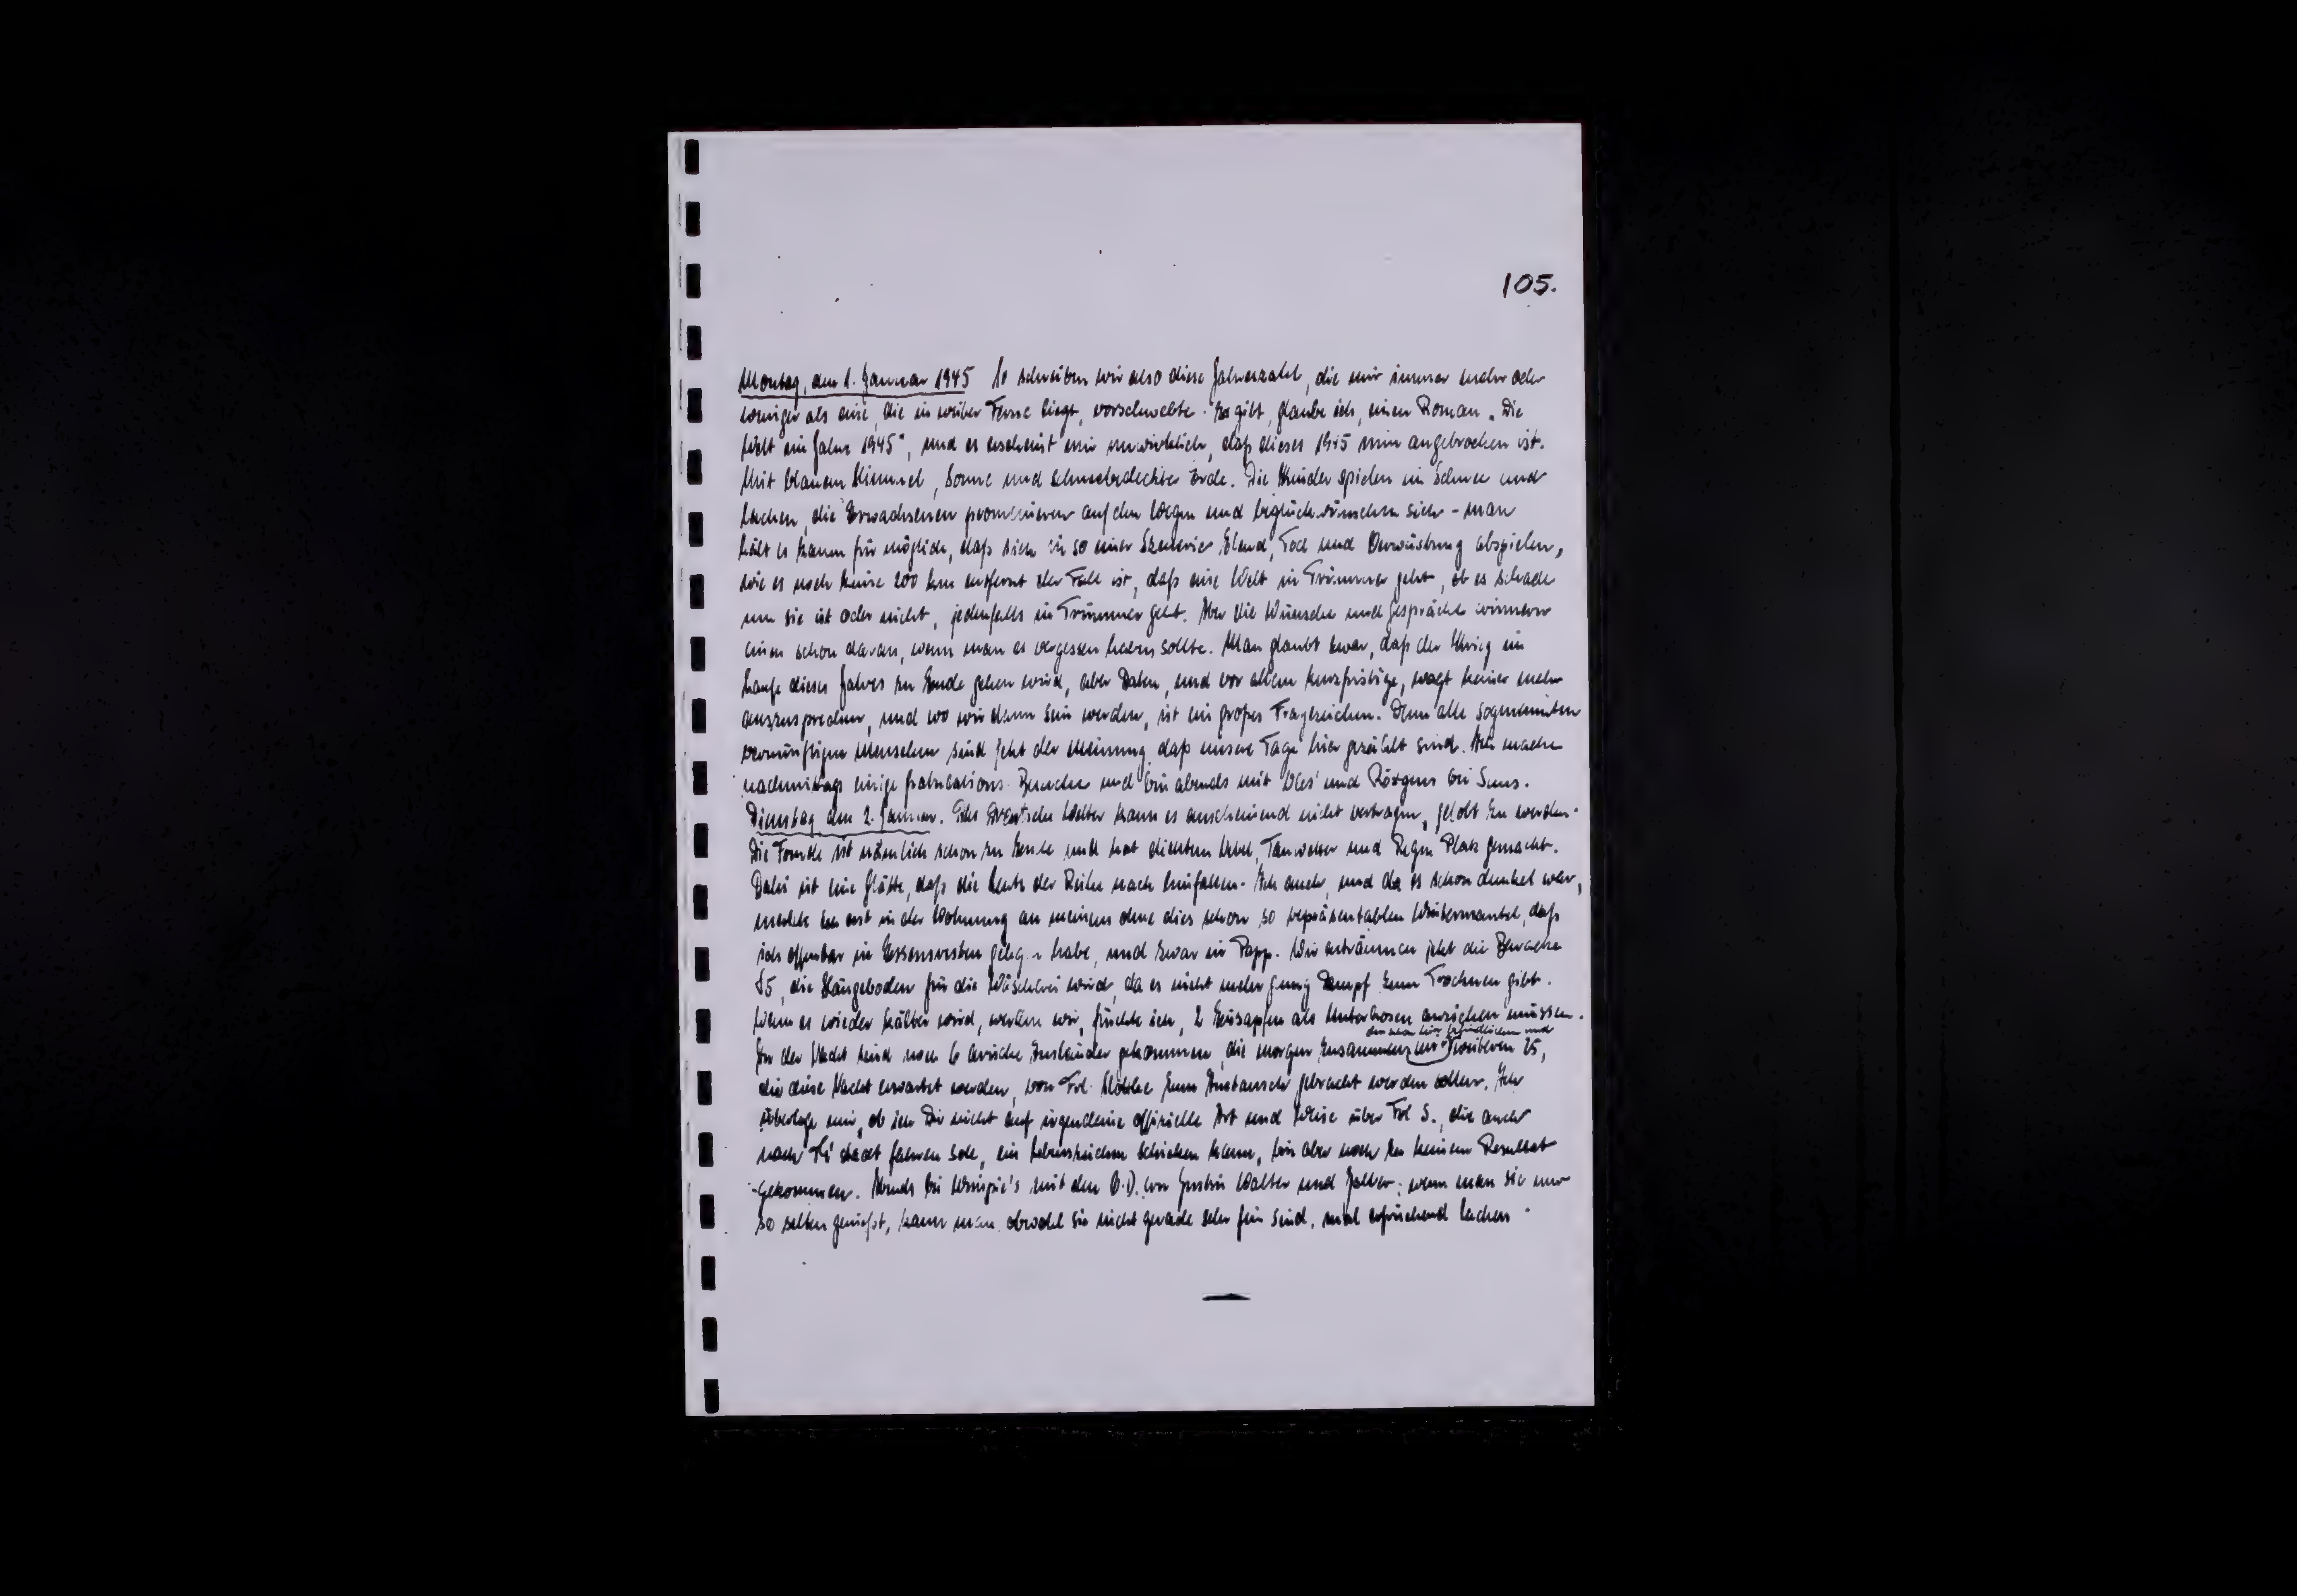 105.
Montag, den 1. Januar 1945 So schreiben wir also diese Jahreszahl, die mir immer mehr oder
weniger als eine, die in weiter Ferne liegt, vorschwebte. Es gibt, glaube ich, einen Roman „Die
Welt im Jahre 1945", und es erscheint mir unwirklich, daß dieses 1945 nun angebrochen ist.
Mit blauem Himmel, Sonne und schneebedeckter Erde. Die Kinder spielen im Schnee und
lachen, die Erwachsenen promenieren auf den Wegen und beglückwünschen sich - man
hält es kaum für möglich, daß sich in so einer Szenerie Elend, Tod und Verwüstung abspielen,
wie es noch keine 200 km entfernt der Fall ist, daß eine Welt in Trümmer geht, ob es schade
um sie ist oder nicht, jedenfalls in Trümmer geht. Aber die Wünsche und Gespräche erinnern
einen schon daran, wenn man es vergessen haben sollte. Man glaubt zwar, daß der Krieg im
Laufe dieses Jahres zu Ende gehen wird, aber Daten, und vor allem kurzfristige, wagt keiner mehr
auszusprechen, und wo wir dann sein werden, ist ein großes Fragezeichen. Denn alle sogenannten
vernünftigen Menschen sind jetzt der Meinung, daß unsere Tage hier gezählt sind. Ich mache
nachmittags einige Gratulations-Besuche und bin abends mit und bei
Dienstag, den 2. Januar. Das Wetter kann es anscheinend nicht vertragen, gelobt zu werden.
Die Freude ist nämlich schon zu Ende und hat dichtem Nebel, Tauwetter und Regen Platz gemacht.
Dabei ist eine Glätte, daß die Leute der Reihe nach hinfallen. Ich auch, und da es schon dunkel war,
merkte ich erst in der Wohnung an meinem ohne dies schon so repräsentablen Wintermantel, daß
ich offenbar in Essensresten gelegen habe, und zwar in Papp. Wir enträumen jetzt die Baracke
die Hängeboden für die Wäscherei wird, da es nicht mehr genug Dampf zum Trocknen gibt.
Wenn es wieder kälter wird, werden wir, fürchte ich, 2 als Unterhosen anziehen müssen.
den schon hier befindlichen und
In der Nacht sind noch 6 Ausländer gekommen, die morgen zusammen mit weiteren 25,
die diese Nacht erwartet werden, von Frl. zum Austausch gebracht werden sollen. Ich
überlege mir, ob ich Dir nicht auf irgendeine offizielle Art und Weise über Frl S., die auch
nach fahren soll, ein Lebenszeichen schicken kann, bin aber noch zu keinem Resultat
gekommen. Abends bei mit den Walter und wenn man sie nur
so selten genießt, kann man, obwohl sie nicht gerade sehr fein sind, mal erfrischend lachen.